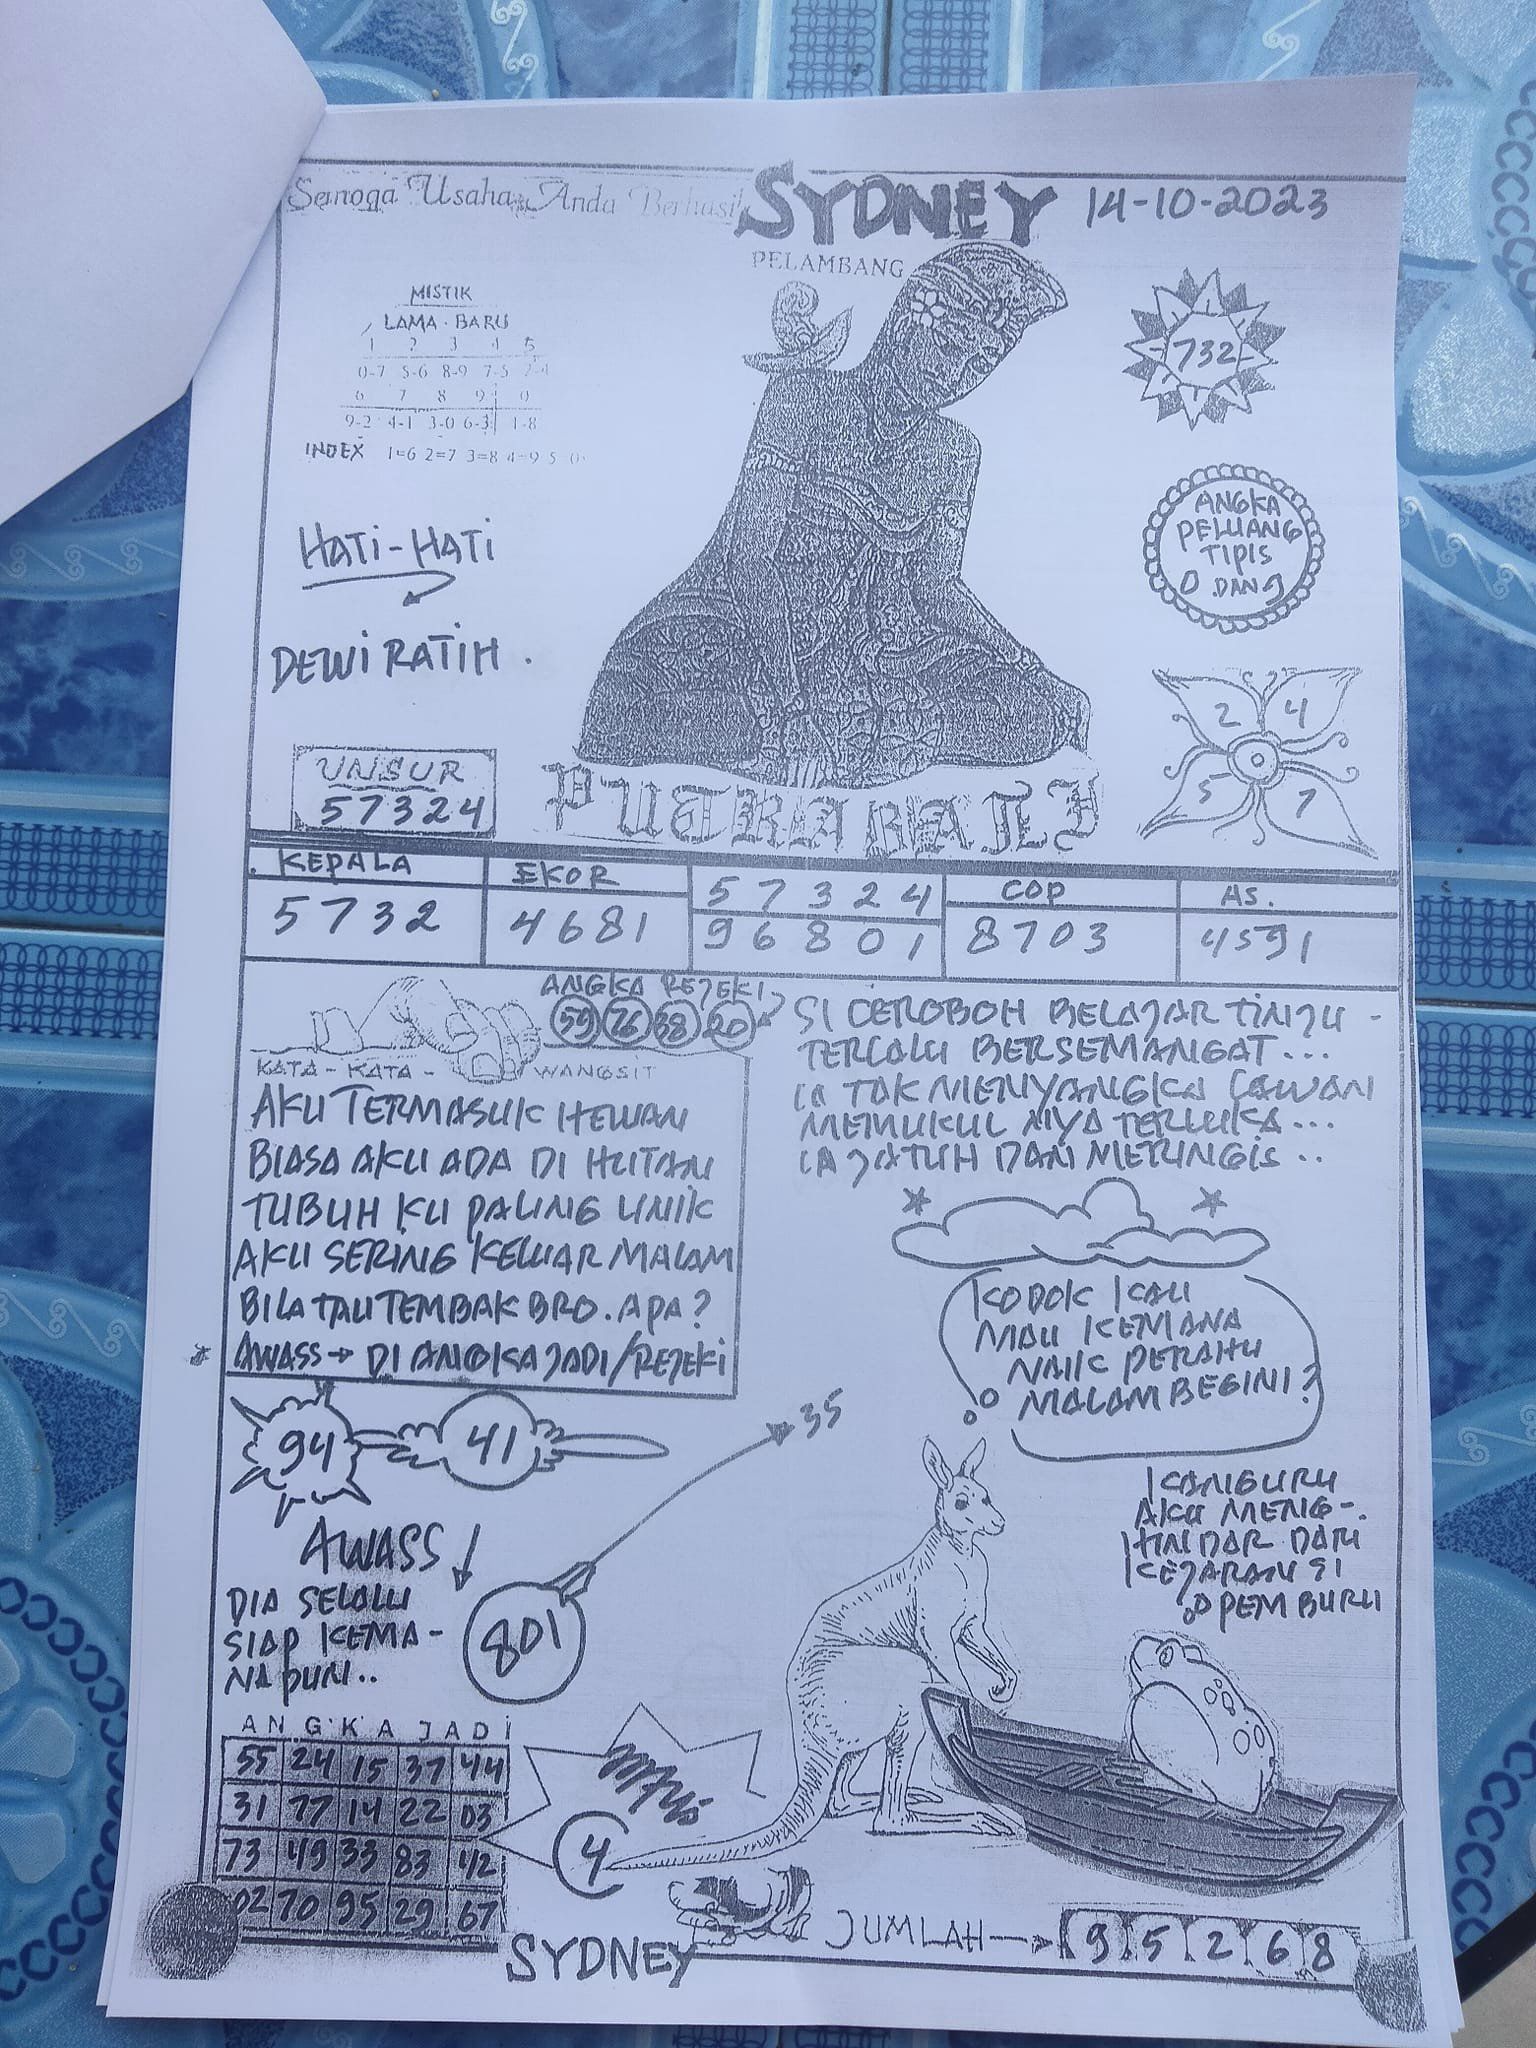 Semoga Usaha Anda Berhasil
SYDNEY 14-10-2023
PELAMBANG
MISTIK
LAMA - BARU
1 2 3 4 5
0-7 5-6 8-9 7-5 2-4
6 7 8 9 0
9-2 4-1 3-0 6-3 1-8
INDEX 1=6 2=7 3=8 4=9 5 0
732
HATI-HATI
DEWI RATIH.
ANGKA
PELUANG
TIPIS
0 DAN 9
2 4
5 7
UNSUR
57324
PUTRA BALI
KEPALA EKOR 57324 COP AS.
5732 4681 96801 8703 4591
ANGKA REJEKI
59 76 38 20
KATA-KATA-WANGSIT
AKU TERMASUK HEWAN
BIASA AKU ADA DI HUTAN
TUBUH KU PALING UNIK
AKU SERING KELUAR MALAM
BILA TAU TEMBAK BRO. APA?
AWASS → DI ANGKA JADI/REJEKI
SI CEROBOH BELAJAR TINJU -
TERLALU BERSEMANGAT...
IA TAK MENYANGKA LAWAN
MEMUKUL NYA TERLUKA...
IA JATUH DAN MERINGIS..
KODOK KAU
MAU KEMANA
NAIK PERAHU
MALAM BEGINI?
KANGURU
AKU MENG-
HINDAR DARI
KEJARAN SI
PEMBURU
94 41
35
AWASS
DIA SELALU
SIAP KEMA-
NAPUN..
801
ANGKA JADI
55 24 15 37 44
31 77 14 22 03
73 49 33 83 42
02 70 95 29 67
4
SYDNEY
JUMLAH → 9 5 2 6 8